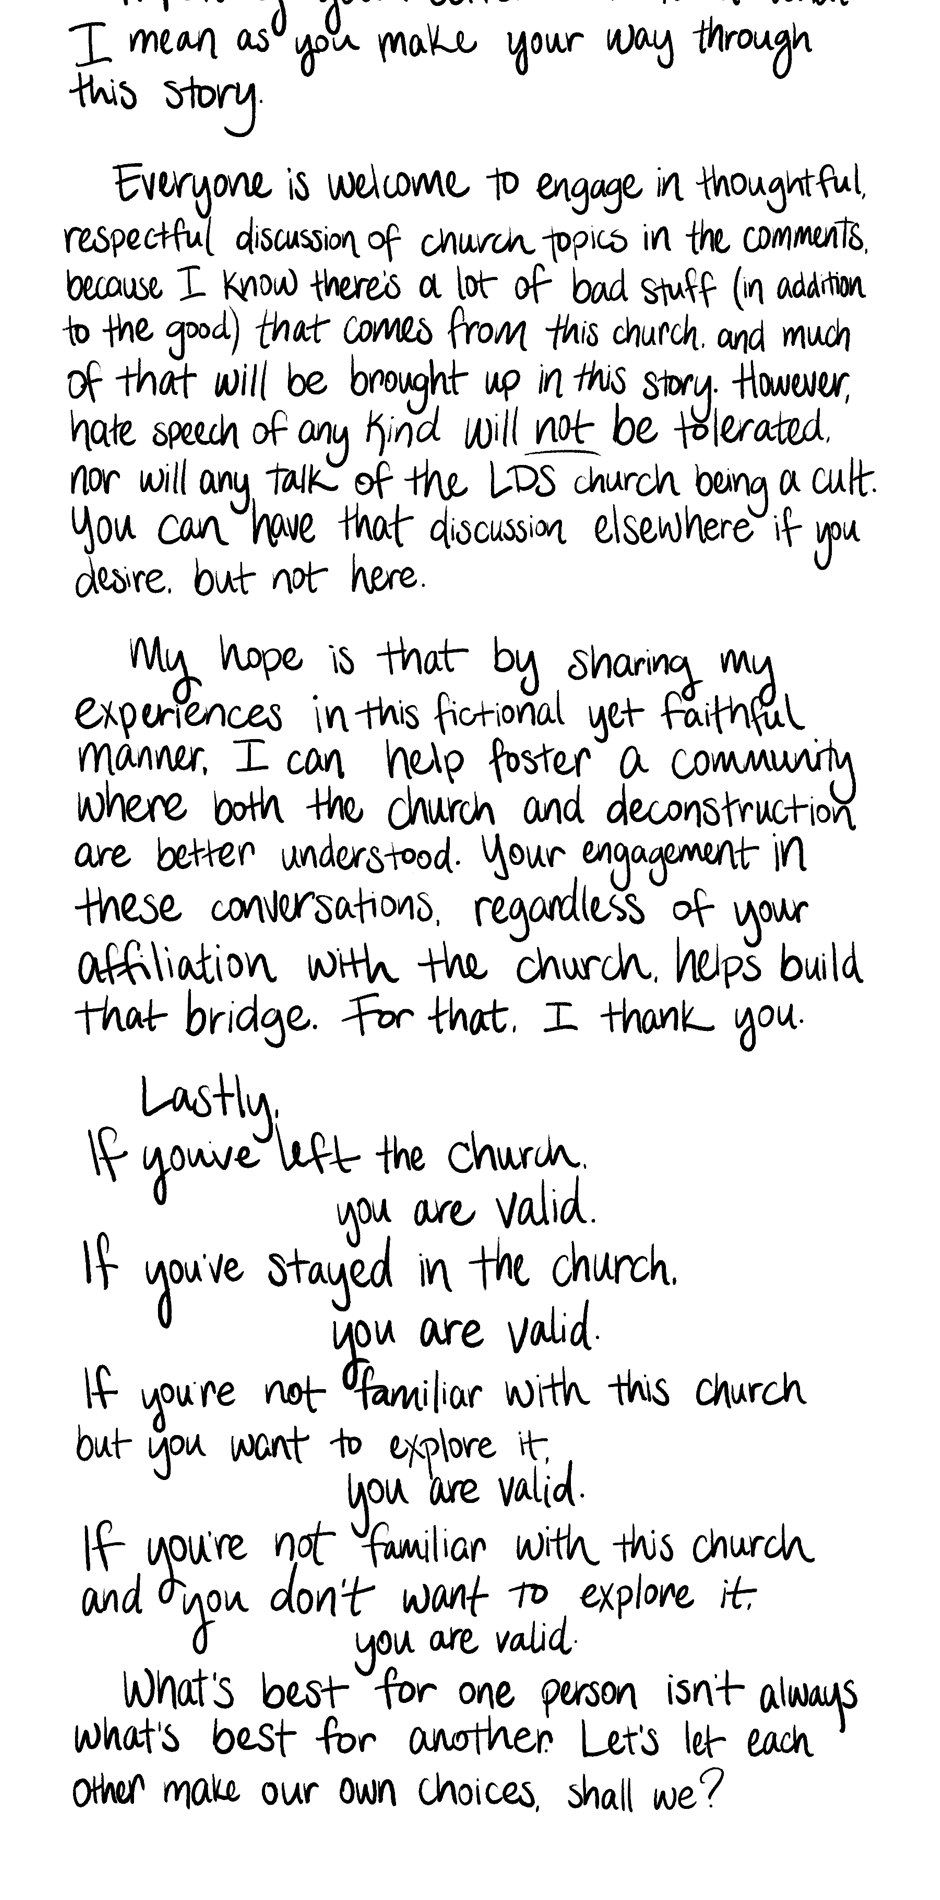 I mean as you make your way through
this story.
Everyone is welcome to engage in thoughtful,
respectful discussion of church topics in the comments,
because I know there's a lot of bad stuff (in addition
to the good) that comes from this church, and much
of that will be brought up in this story. However,
hate speech of any kind will not be tolerated,
nor will any talk of the LDS church being a cult.
You can have that discussion elsewhere if you
desire, but not here.
My hope is that by sharing my
experiences in this fictional yet faithful
manner, I can help foster a community
where both the church and deconstruction
are better understood. Your engagement in
these conversations, regardless of your
affiliation with the church, helps build
that bridge. For that, I thank you.
Lastly,
If you've left the church,
you are valid.
If you've stayed in the church,
you are valid.
If you're not familiar with this church
but you want to explore it,
you are valid.
If you're not familiar with this church
and you don't want to explore it,
you are valid.
What's best for one person isn't always
what's best for another. Let's let each
other make our own choices, shall we?